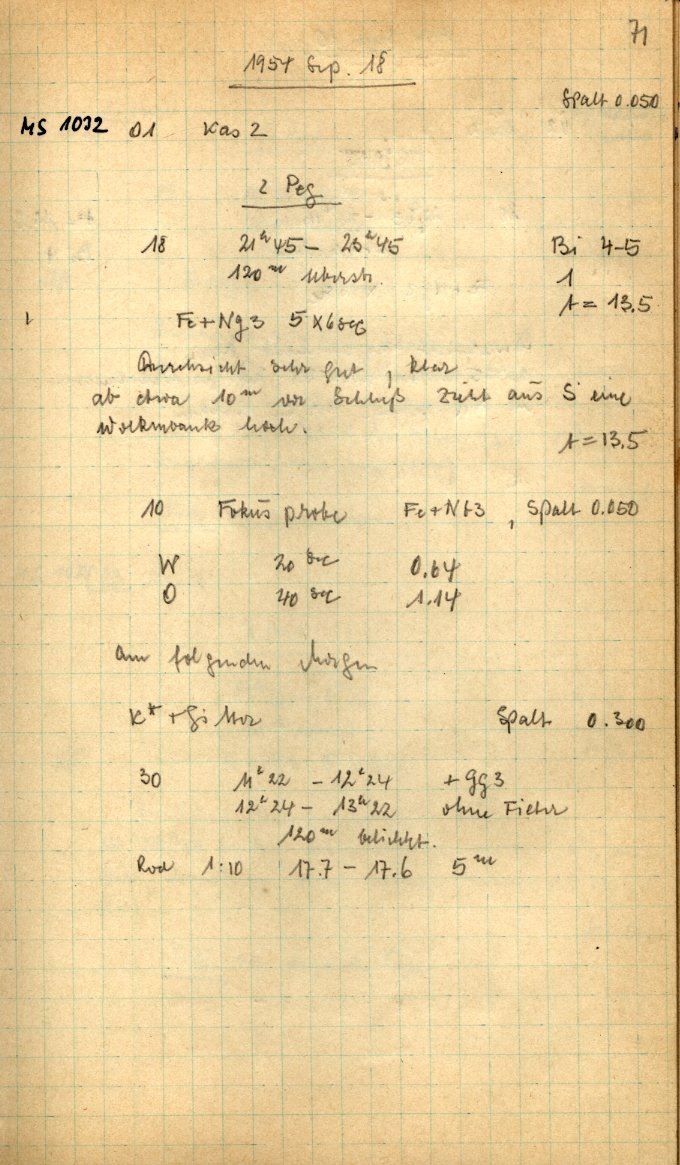 71
1954 Sep. 18
Spalt 0.050
MS 1032 01 Kas 2
2 Peg
18 21ʰ45 – 23ʰ45 Bi 4-5
120ᵐ überstr. 1
t = 13.5
1 Fe+Ng3 5x6sec
Durchsicht sehr gut, klar
ab etwa 10ᵐ vor Schluß zieht aus S eine
Wolkenbank hoch.
t = 13.5
10 Fokusprobe Fe+Nb3, Spalt 0.050
W 20 sec 0.64
O 40 sec 1.14
Am folgenden Morgen
K* + Gitter Spalt 0.300
30 11ʰ22 – 12ʰ24 + Gg3
12ʰ24 – 13ʰ22 ohne Filter
120ᵐ belichtet.
Rod 1:10 17.7 – 17.6 5ᵐ